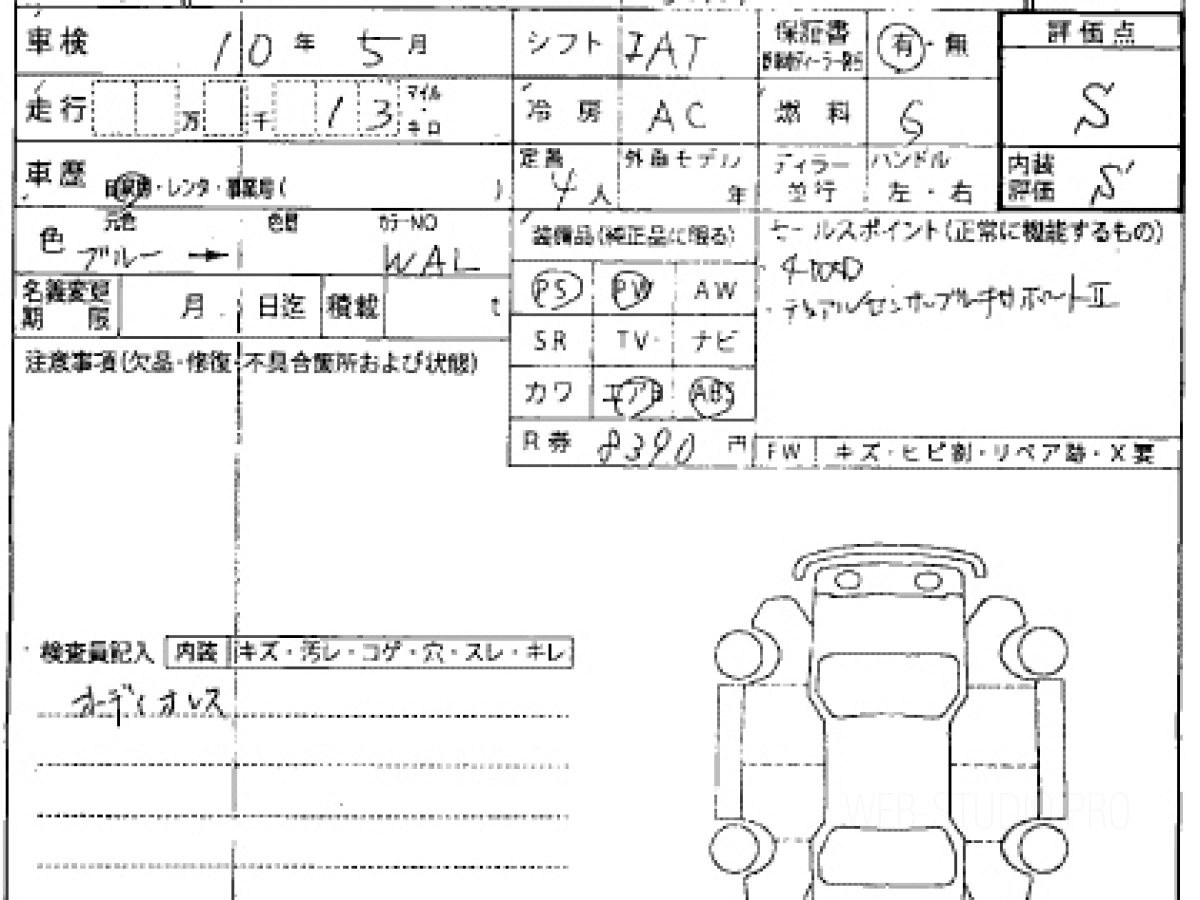 車検 10年 5月 シフト IAT 保証書 有・無 評価点
走行 万 千 13 マイル・キロ 冷房 AC 燃料 G S
車歴 自家用・レンタ・事業用( ) 定員 4人 外車モデル 年 ディラー 並行 ハンドル 左・右 内装評価 S
色 元色 ブルー → 色替 カラーNO WAL 装備品(純正品に限る) セールスポイント(正常に機能するもの)
・4WD
名義変更期限 月 日迄 積載 t PS PW AW ・デュアルセンサーブレーキサポートⅡ
SR TV ナビ
注意事項(欠品・修復・不具合箇所および状態)
カワ エアB ABS
R券 8390円 FW キズ・ヒビ割・リペア跡・X要
検査員記入 内装 キズ・汚レ・コゲ・穴・スレ・キレ
オーディオレス
WEB-STUDIO.PRO